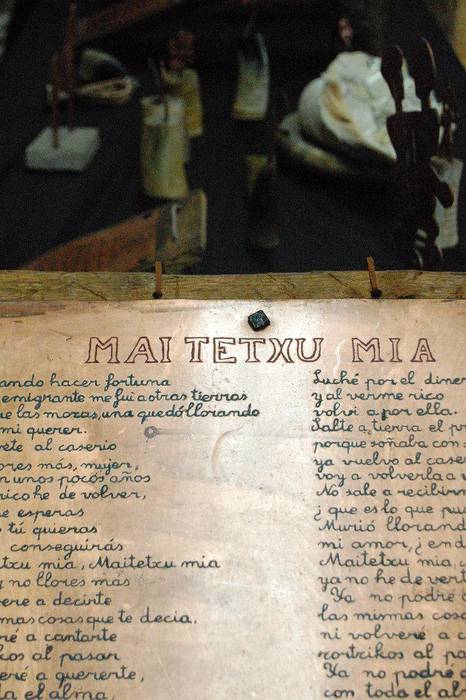 MAITETXU MIA
ando hacer fortuna
emigrante me fui a otras tierras
e las mozas, una quedó llorando
mi querer.
vete al caserio
ores más, mujer,
n unos pocos años
rico he de volver,
e esperas
tú quieras
conseguirás
txu mia, Maitetxu mia
y no llores más
ere a decirte
mas cosas que te decia.
ré a cantarte
kos al pasar
eré a quererte,
a el alma,
Luché por el diner
y al verme rico
volvi a por ella.
Salte a tierra el pr
porque soñaba con
ya vuelvo al caser
voy a volverla a v
No sale a recibirm
¿que es lo que pu
Murió llorand
mi amor, ¿en d
Maitetxu mia
ya no he de vert
Ya no podré
las mismas cosa
ni volveré a c
zortzikos al pa
Ya no podré a
con todo el al